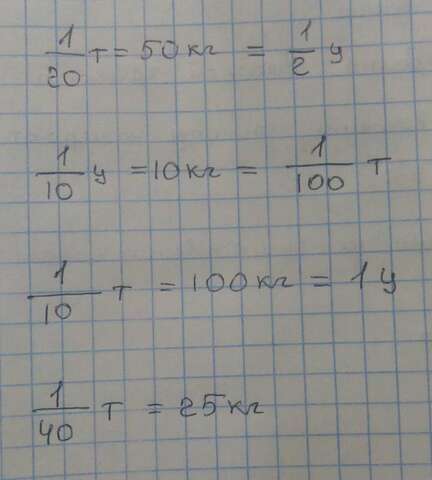 1/20 т = 50 кг = 1/2 ц
1/10 ц = 10 кг = 1/100 т
1/10 т = 100 кг = 1 ц
1/40 т = 25 кг